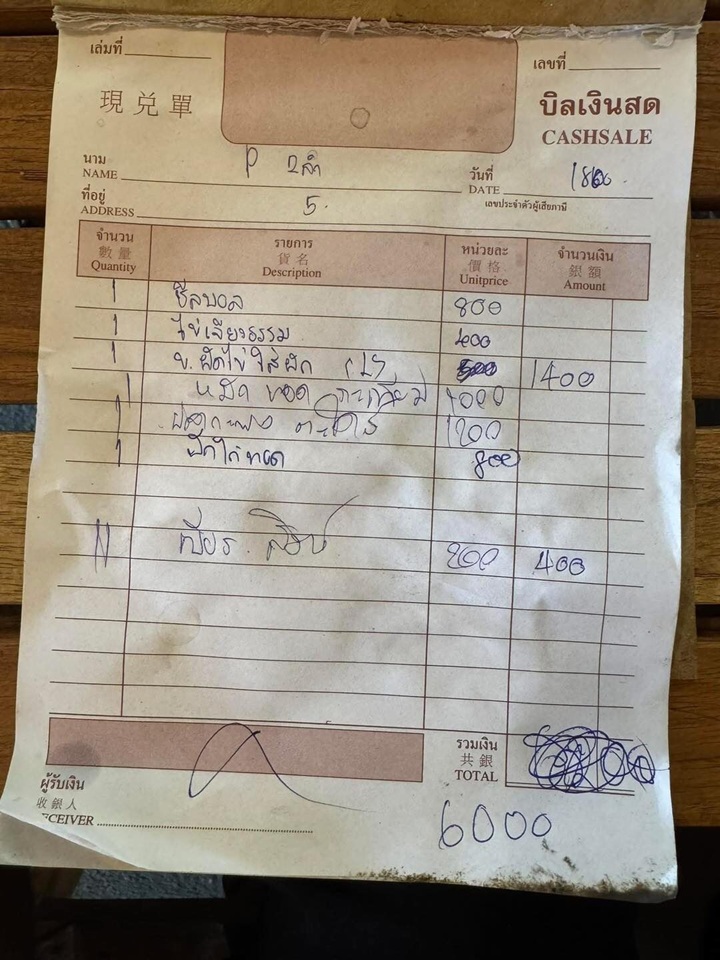 เล่มที่ เลขที่
現兌單 บิลเงินสด
CASHSALE
นาม วันที่
NAME P 2ลำ DATE
ที่อยู่ เลขประจำตัวผู้เสียภาษี
ADDRESS 5.
จำนวน รายการ หน่วยละ จำนวนเงิน
數量 貨名 價格 銀額
Quantity Description Unitprice Amount
1 ชีสบอล 800
1 ไข่เจียวธรรม 400
1 ข. ผัดไข่ใส่ผัก 1400
1 หมึก ทอด กระเทียม 1000
1 1200
1 ไก่ทอด 800
11 เบียร สิงห์ 200 400
รวมเงิน
共銀
TOTAL
ผู้รับเงิน
收銀人
ECEIVER 6000